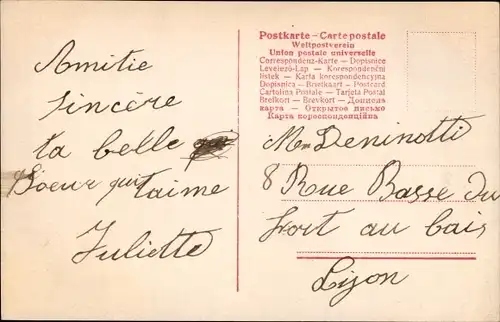 Amitie
sincère
ta belle
Soeur qui t'aime
Juliette
Postkarte - Carte postale
Weltpostverein
Union postale universelle
Correspondenz-Karte - Dopisnice
Levelező-Lap - Korespondenční
lístek - Karta korespondencyjna
Dopisnica - Briefkaart - Postcard
Cartolina Postale - Tarjeta Postal
Brefkort - Brevkort - Дописна
карта - Открытое письмо
Карта кореспонденційна
Mme Deninotti
8 Rue Basse du
Port au bois
Lyon